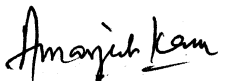 Amarjeet Kaur